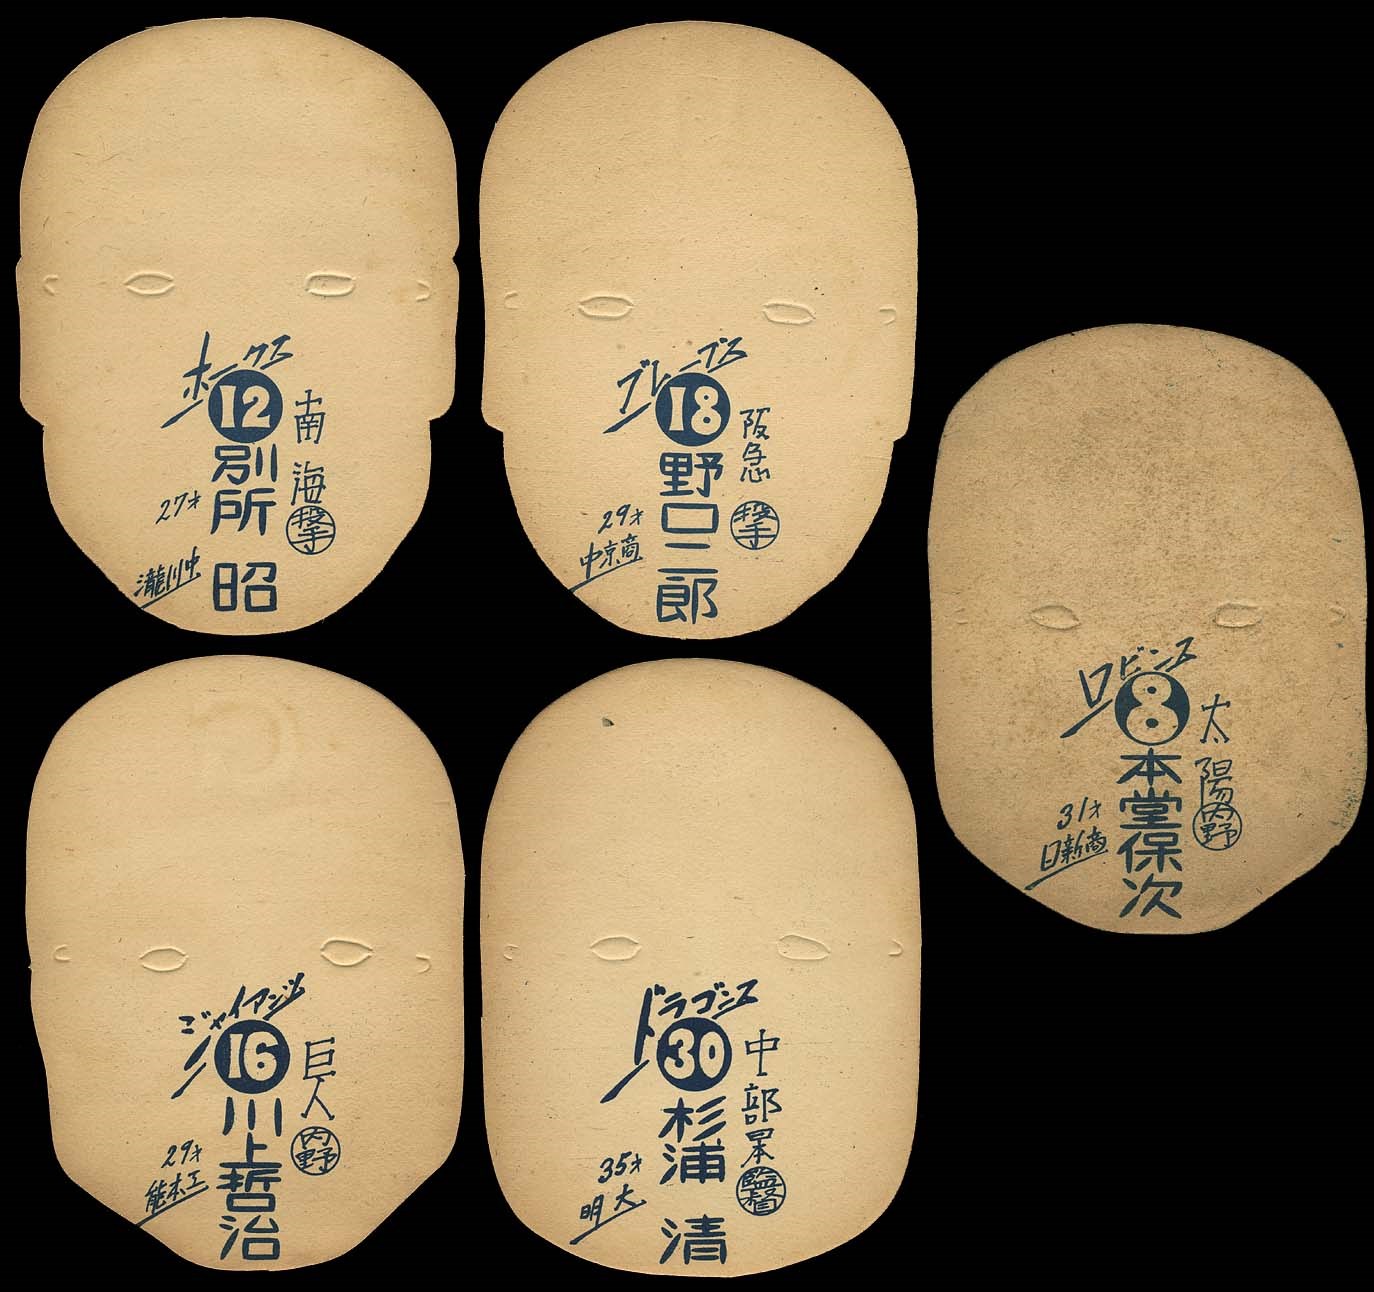 ホークス
12
南海
投手
別所 昭
27才
瀧川中
ブレーブス
18
阪急
投手
野口二郎
29才
中京商
ロビンス
8
太陽
内野
本堂保次
31才
日新商
ジャイアンツ
16
巨人
内野
川上哲治
29才
熊本工
ドラゴンス
30
中部日本
監督
杉浦 清
35才
明大